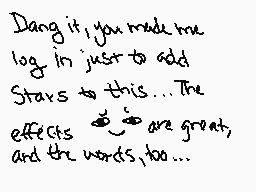 Dang it, you made me
log in just to add
stars to this... The
effects are great,
and the words, too...